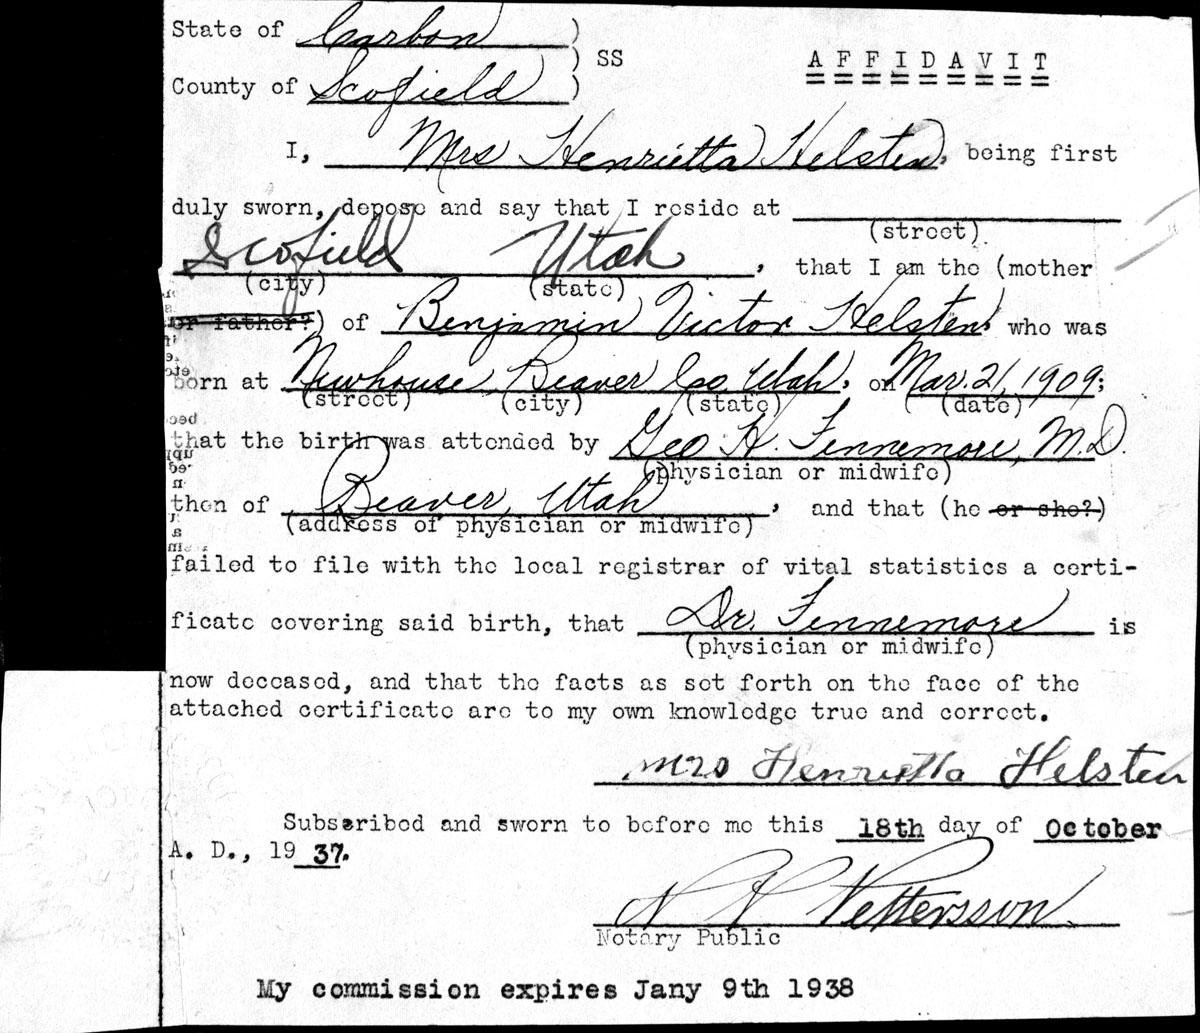 State of Carbon )
) SS
A F F I D A V I T
County of Scofield )
I, Mrs Henrietta Helsten, being first
duly sworn, depose and say that I reside at
(street)
Scofield Utah, that I am the (mother
(city) (state)
or father?) of Benjamin Victor Helsten, who was
born at Newhouse, Beaver Co. Utah, on Mar. 21, 1909;
(street) (city) (state) (date)
that the birth was attended by Geo H. Fennemore, M.D.
(physician or midwife)
then of Beaver, Utah, and that (he or she?)
(address of physician or midwife)
failed to file with the local registrar of vital statistics a certi-
ficate covering said birth, that Dr. Fennemore is
(physician or midwife)
now deceased, and that the facts as set forth on the face of the
attached certificate are to my own knowledge true and correct.
Mrs Henrietta Helsten
Subscribed and sworn to before me this 18th day of October
A. D., 19 37.
Pettersson
Notary Public
My commission expires Jany 9th 1938